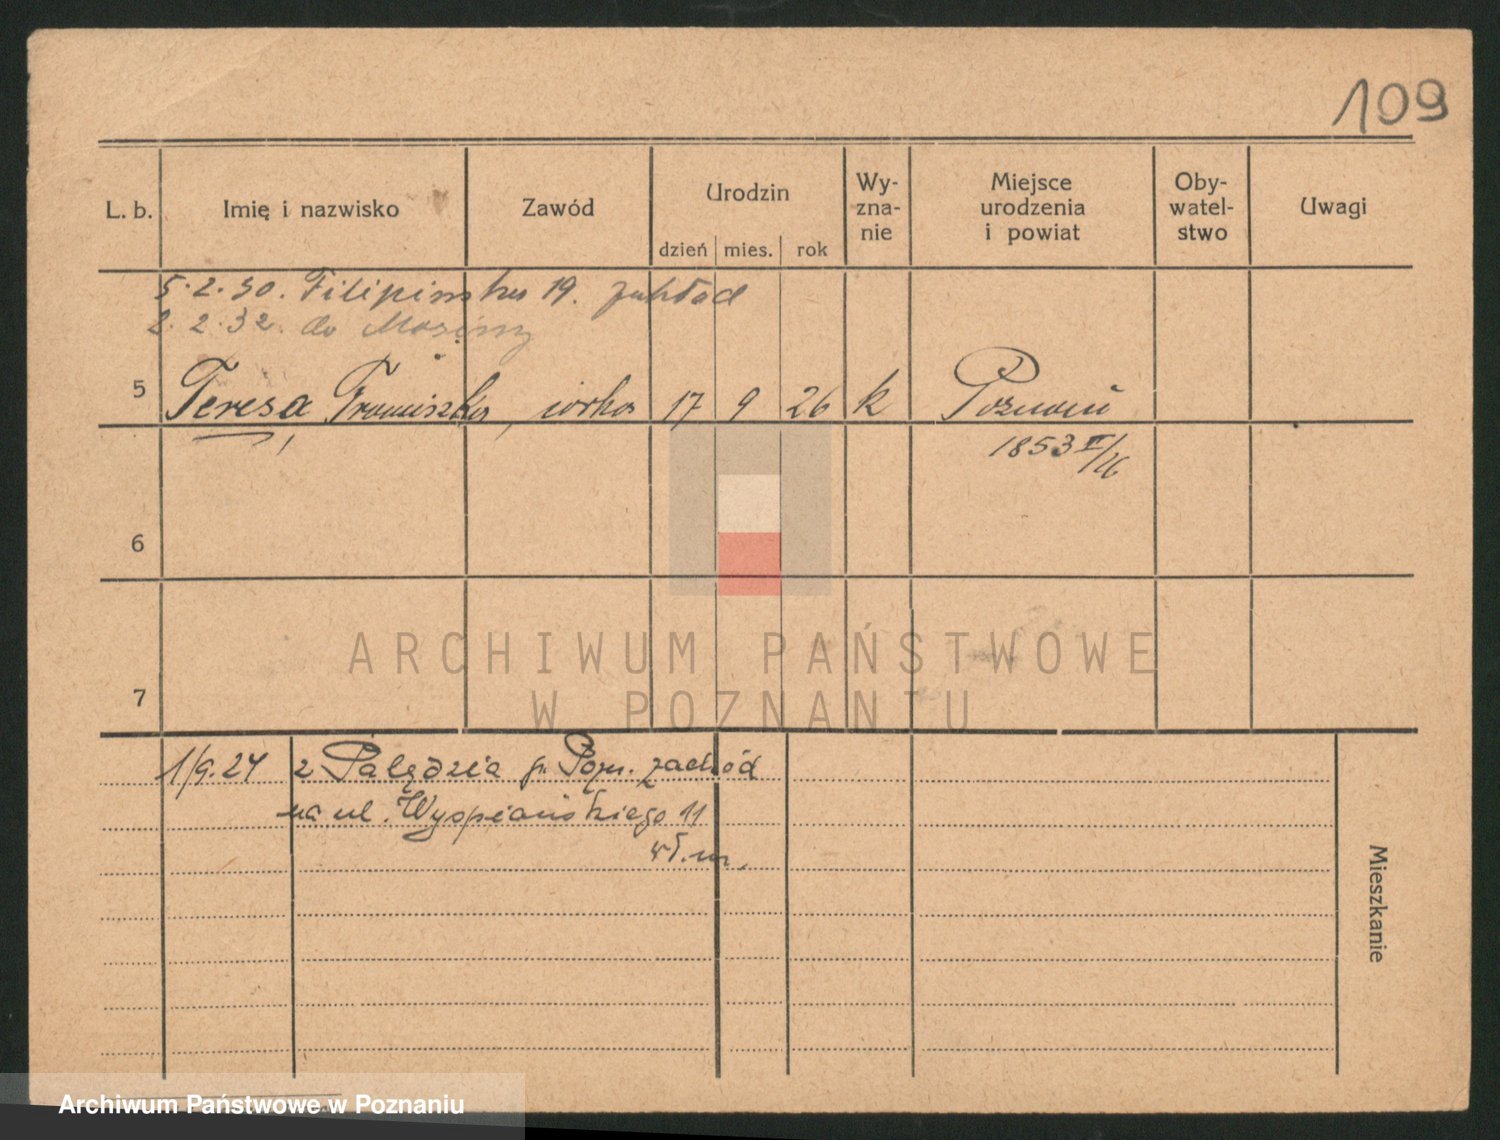 109
L. b. Imię i nazwisko Zawód Urodzin Wy-
zna-
nie Miejsce
urodzenia
i powiat Oby-
watel-
stwo Uwagi
dzień mies. rok
5.2.30. Filipińska 19. zakład
2.2.32. do Mosiny
5 Teresa Franciszka, córka 17 9 26 k Poznań
1853 II/26
6
7
ARCHIWUM PAŃSTWOWE
W POZNANIU
1/9.24 z Palędzia p. Pozn. zachód
na ul. Wyspiańskiego 11
Mieszkanie
Archiwum Państwowe w Poznaniu